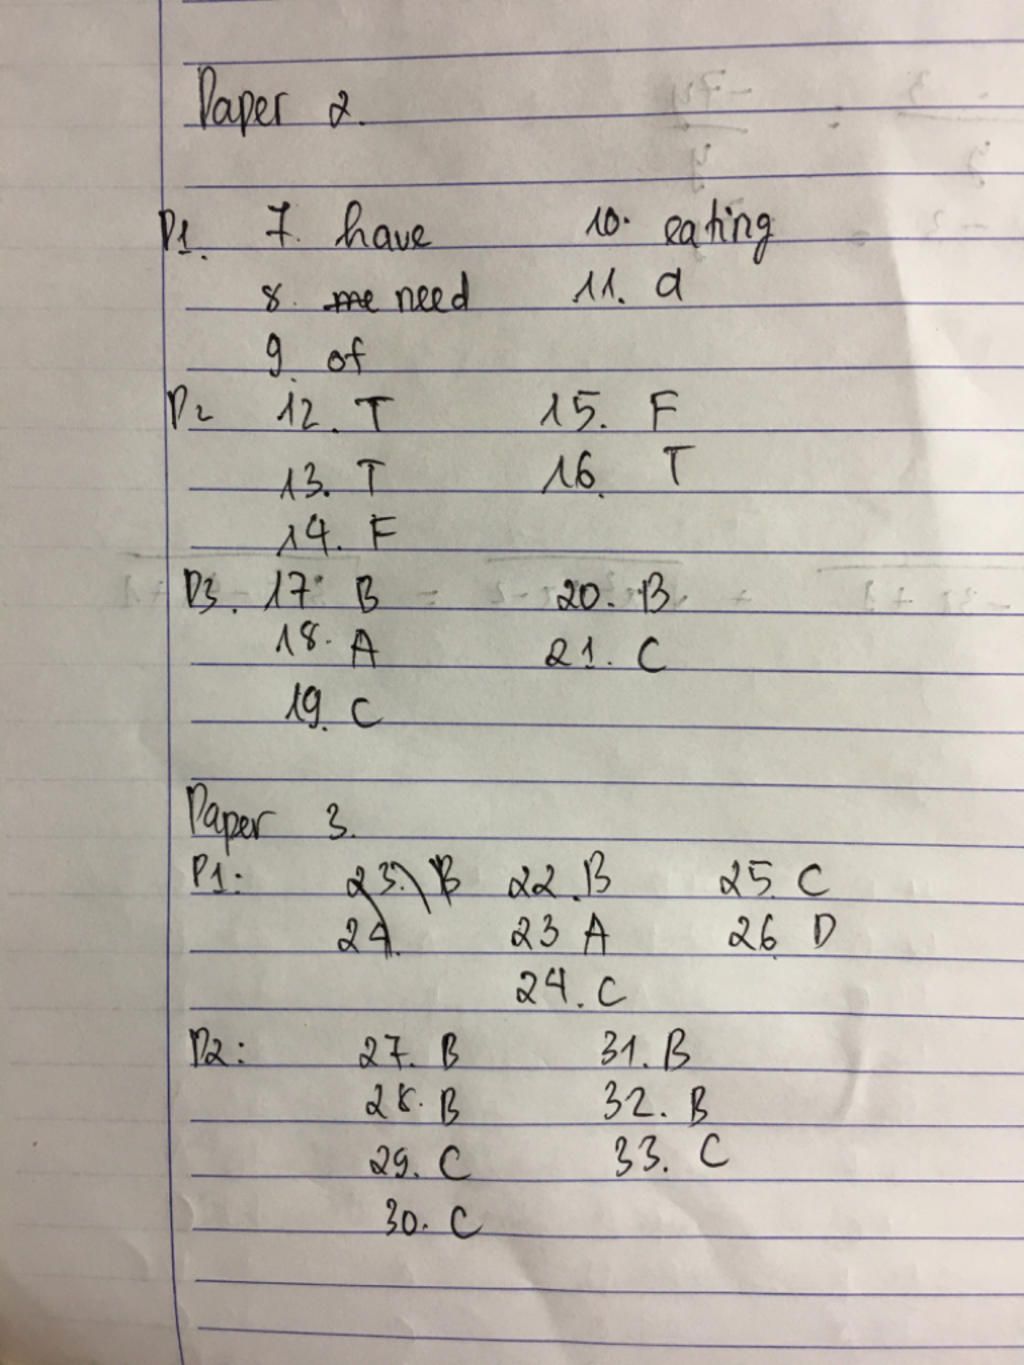 Paper 2.
P1. 7. have 10. eating
8. me need 11. a
9. of
P2 12. T 15. F
13. T 16. T
14. F
P3. 17. B 20. B
18. A 21. C
19. C
Paper 3.
P1: 23. B 22. B 25. C
24. 23 A 26. D
24. C
P2: 27. B 31. B
28. B 32. B
29. C 33. C
30. C